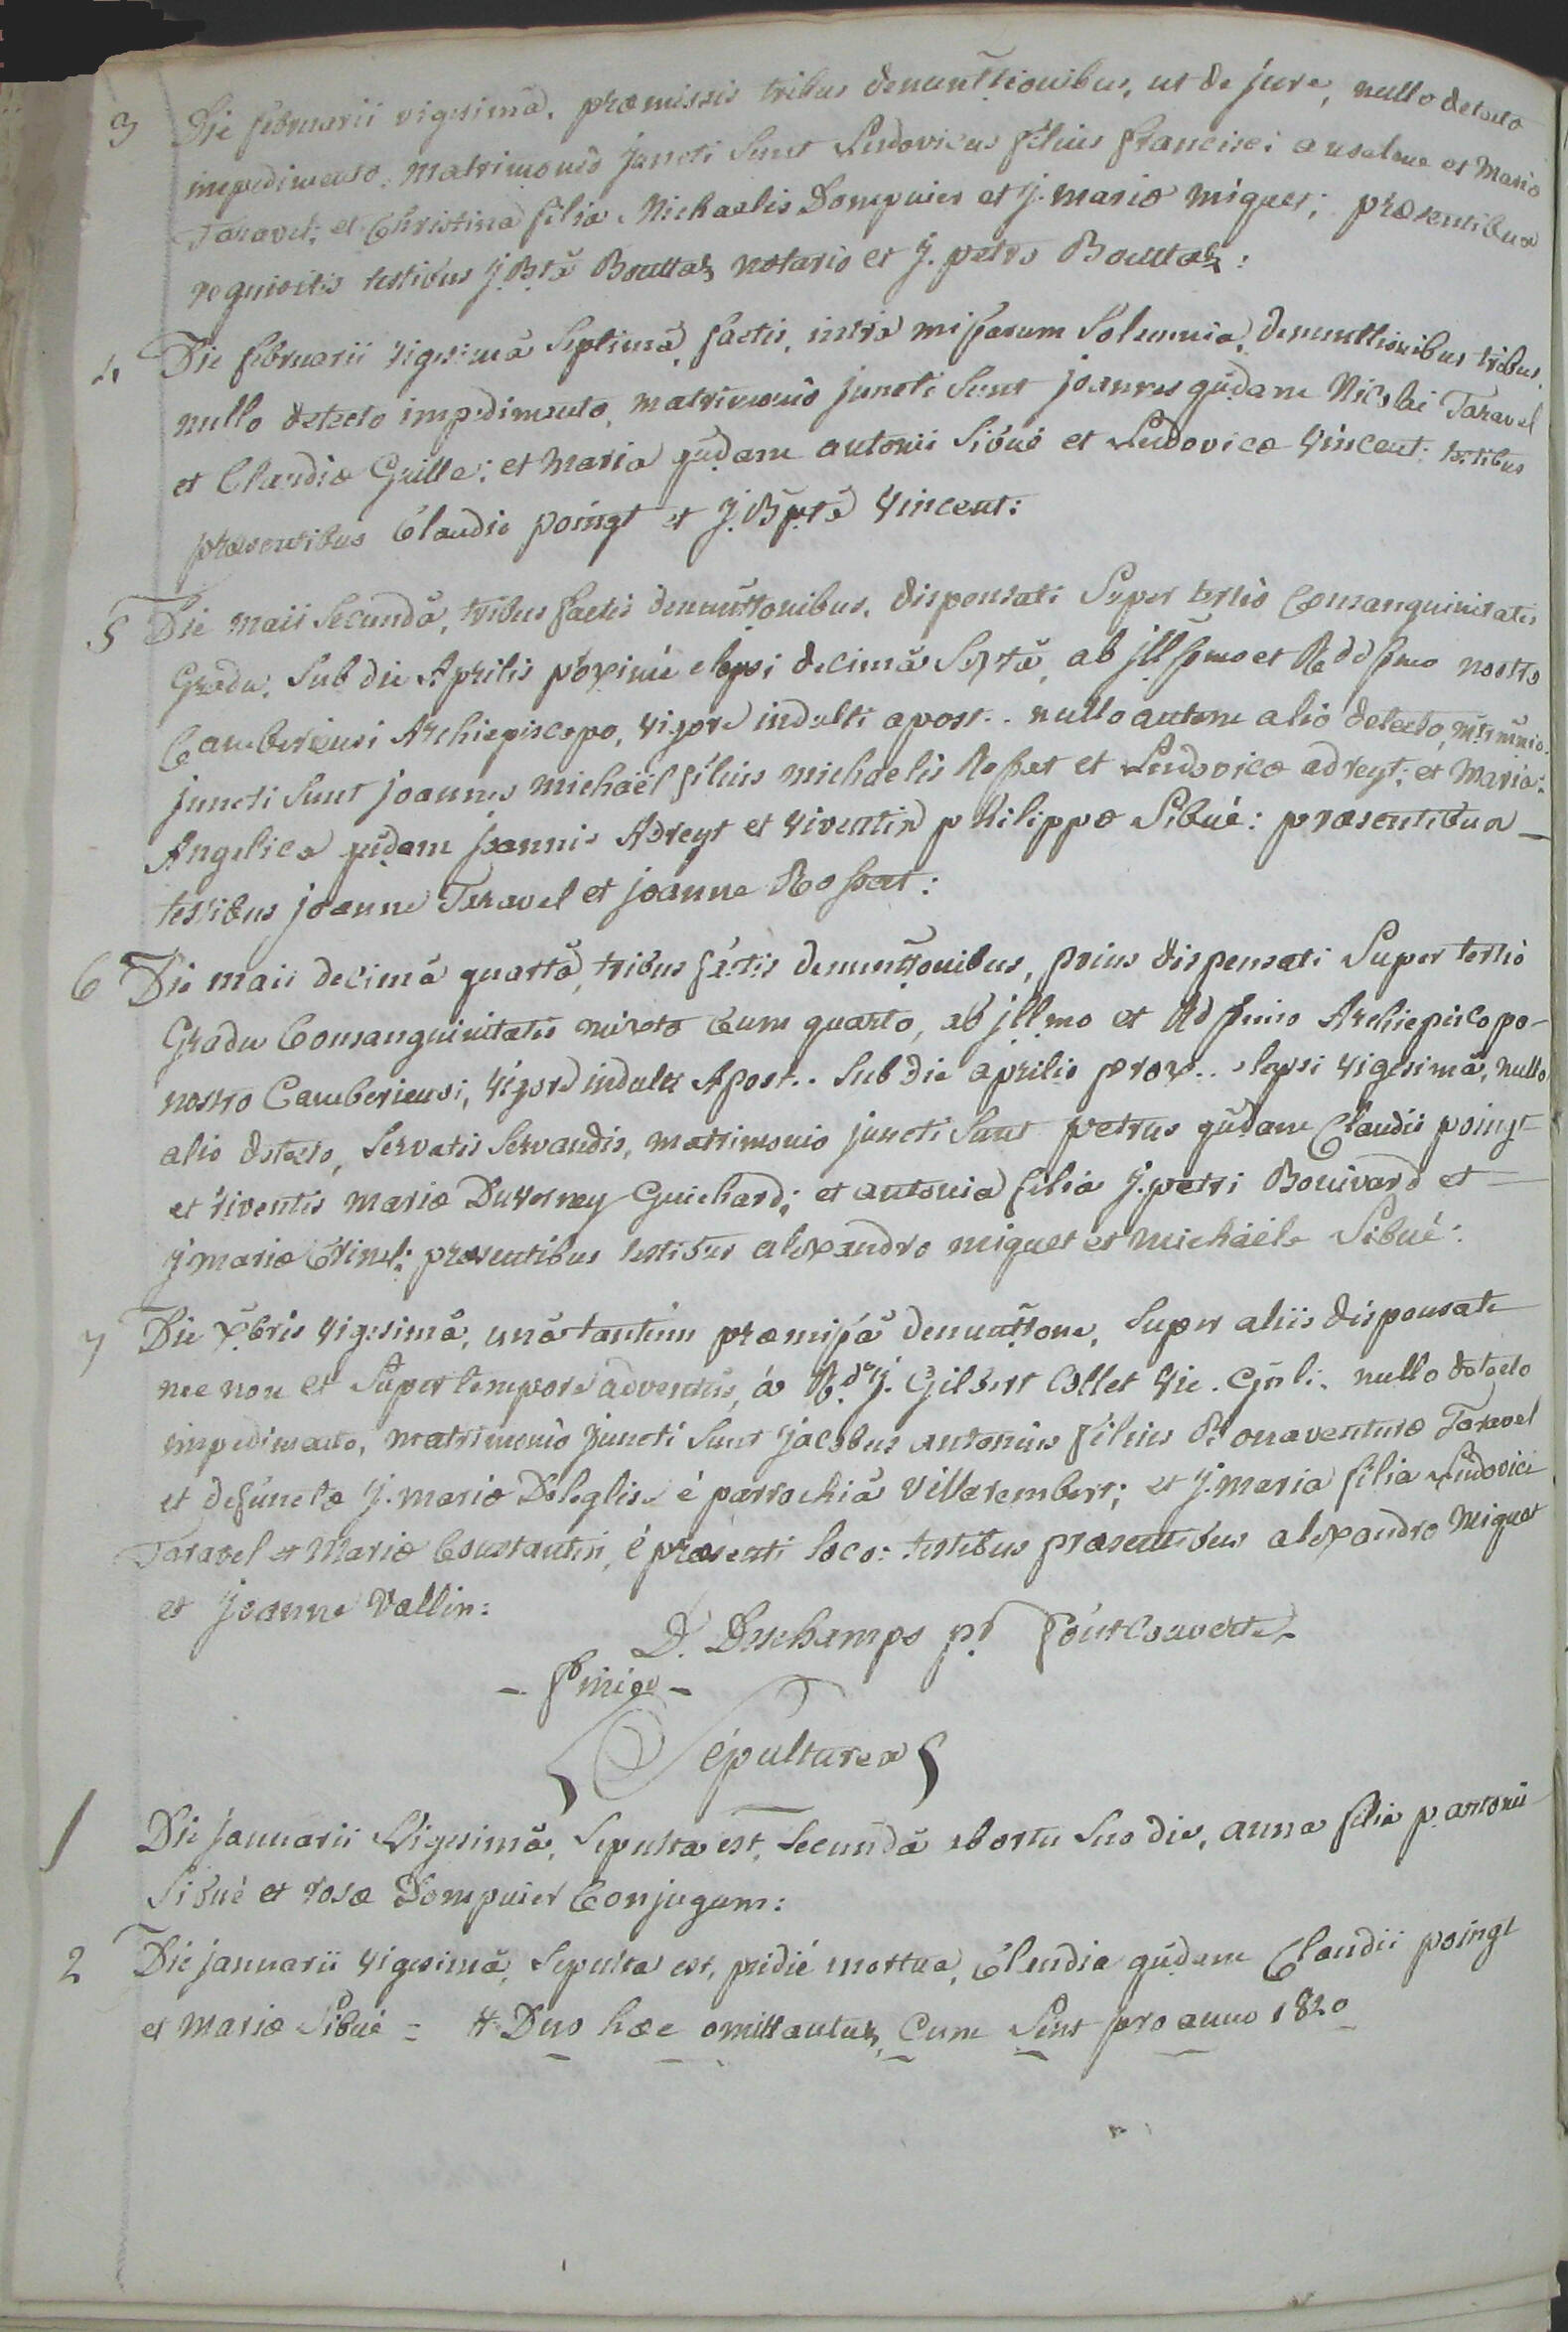 3 Die februarii vigesimâ, præmissis tribus denuntiõnibus, ut de jure, nullo detecto
impedimento, matrimonio juncti Sunt Ludovicus filius francisci anselme et Mariæ
Taravel; et Christina filia Michaelis Dompnier et J. mariæ miguet; præsentibus
requisitis testibus J. Btâ Bouttaz notario et J. petro Bouttaz:
4 Die februarii vigesimâ Septimâ, factis, intrâ missarum Solemnia, denunttionibus tribus,
nullo detecto impedimento, matrimonio juncti Sunt joannes qũdam Nicolai Taravel
et Claudiæ Grille: et Maria qũdam antonii Sibué et Ludovicæ Vincent: testibus
præsentibus Claudio poingt et J. Bptâ Vincent:
5 Die maii Secundâ, tribus factis denuñttonibus, dispensati Super tertio Consanguinitatis
Gradu, Sub die Aprilis pòximé elapsi decimâ Sextâ, ab jllssmo et Rddssmo nostro
Camberiensi Archiepiscopo, vigore indulti apost.. nullo autem alio detecto, mtrimnio
juncti Sunt joannes michaël filius michaelis Rosset et Ludovicæ adreyt; et Maria:
Angelica qũdam joannis Adreyt et viventis philippæ Sibué: præsentibus
testibus joanne Taravel et joanne Rosset:
6 Die maii decimâ quartâ, tribus factis denunttonibus, prius dispensati Super tertio
Gradu Consanguinitatis mixto Cum quarto, ab jllmo et Rdssimo Archiepiscopo
nostro Camberiensi, vigore indulti Apost.. Sub die aprilis prox.. elapsi vigesimâ, nullo
alio detecto, Servatis Servandis, matrimonio juncti Sunt petrus qũdam Claudii poingt
et viventis mariæ Duverney Guichard; et antonia filia J. petri Bonivard et
J mariæ Crinel: præsentibus testibus alexandro miguet et michäele Sibué:
7 Die Xbris vigesimâ, unâ tantùm præmissâ denunttone, Super aliis dispensati
nec non et Super tempore adventûs, à Rdo J. Gilbert Collet Vic. Gñli. nullo detecto
impedimento, matrimonio juncti Sunt jacobus antonius filius Bonaventuræ Taravel
et defunctæ J. mariæ Deleglise é parrochiâ Villarembert; et J. maria filia Ludovici
Taravel et Mariæ Constantin, é præsenti loco: testibus præsentibus alexandro Miguet
et joanne Vallin:
D. Deschamps pr. fontcouverte
- finies -
Sépultures
1 Die januarii Vigesimâ, Sepulta est, Secundâ ab ortu Suo die, anna filia p. antonii
Sibué et rosæ Dompnier Conjugum:
2 Die januarii vigesimâ, Sepulta est, pridié mortua, Claudia qũdam Claudii poingt
et mariæ Sibué = # Duo hæc omittantur, Cum Sint pro anno 1820